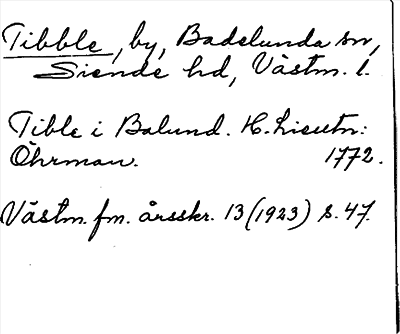 Tibble, by, Badelunda sn,
Siende hd, Västm. l.
Tible i Balund. H. Lieutn:
Öhrman. 1772.
Västm. fm. årsskr. 13 (1923) s. 47.